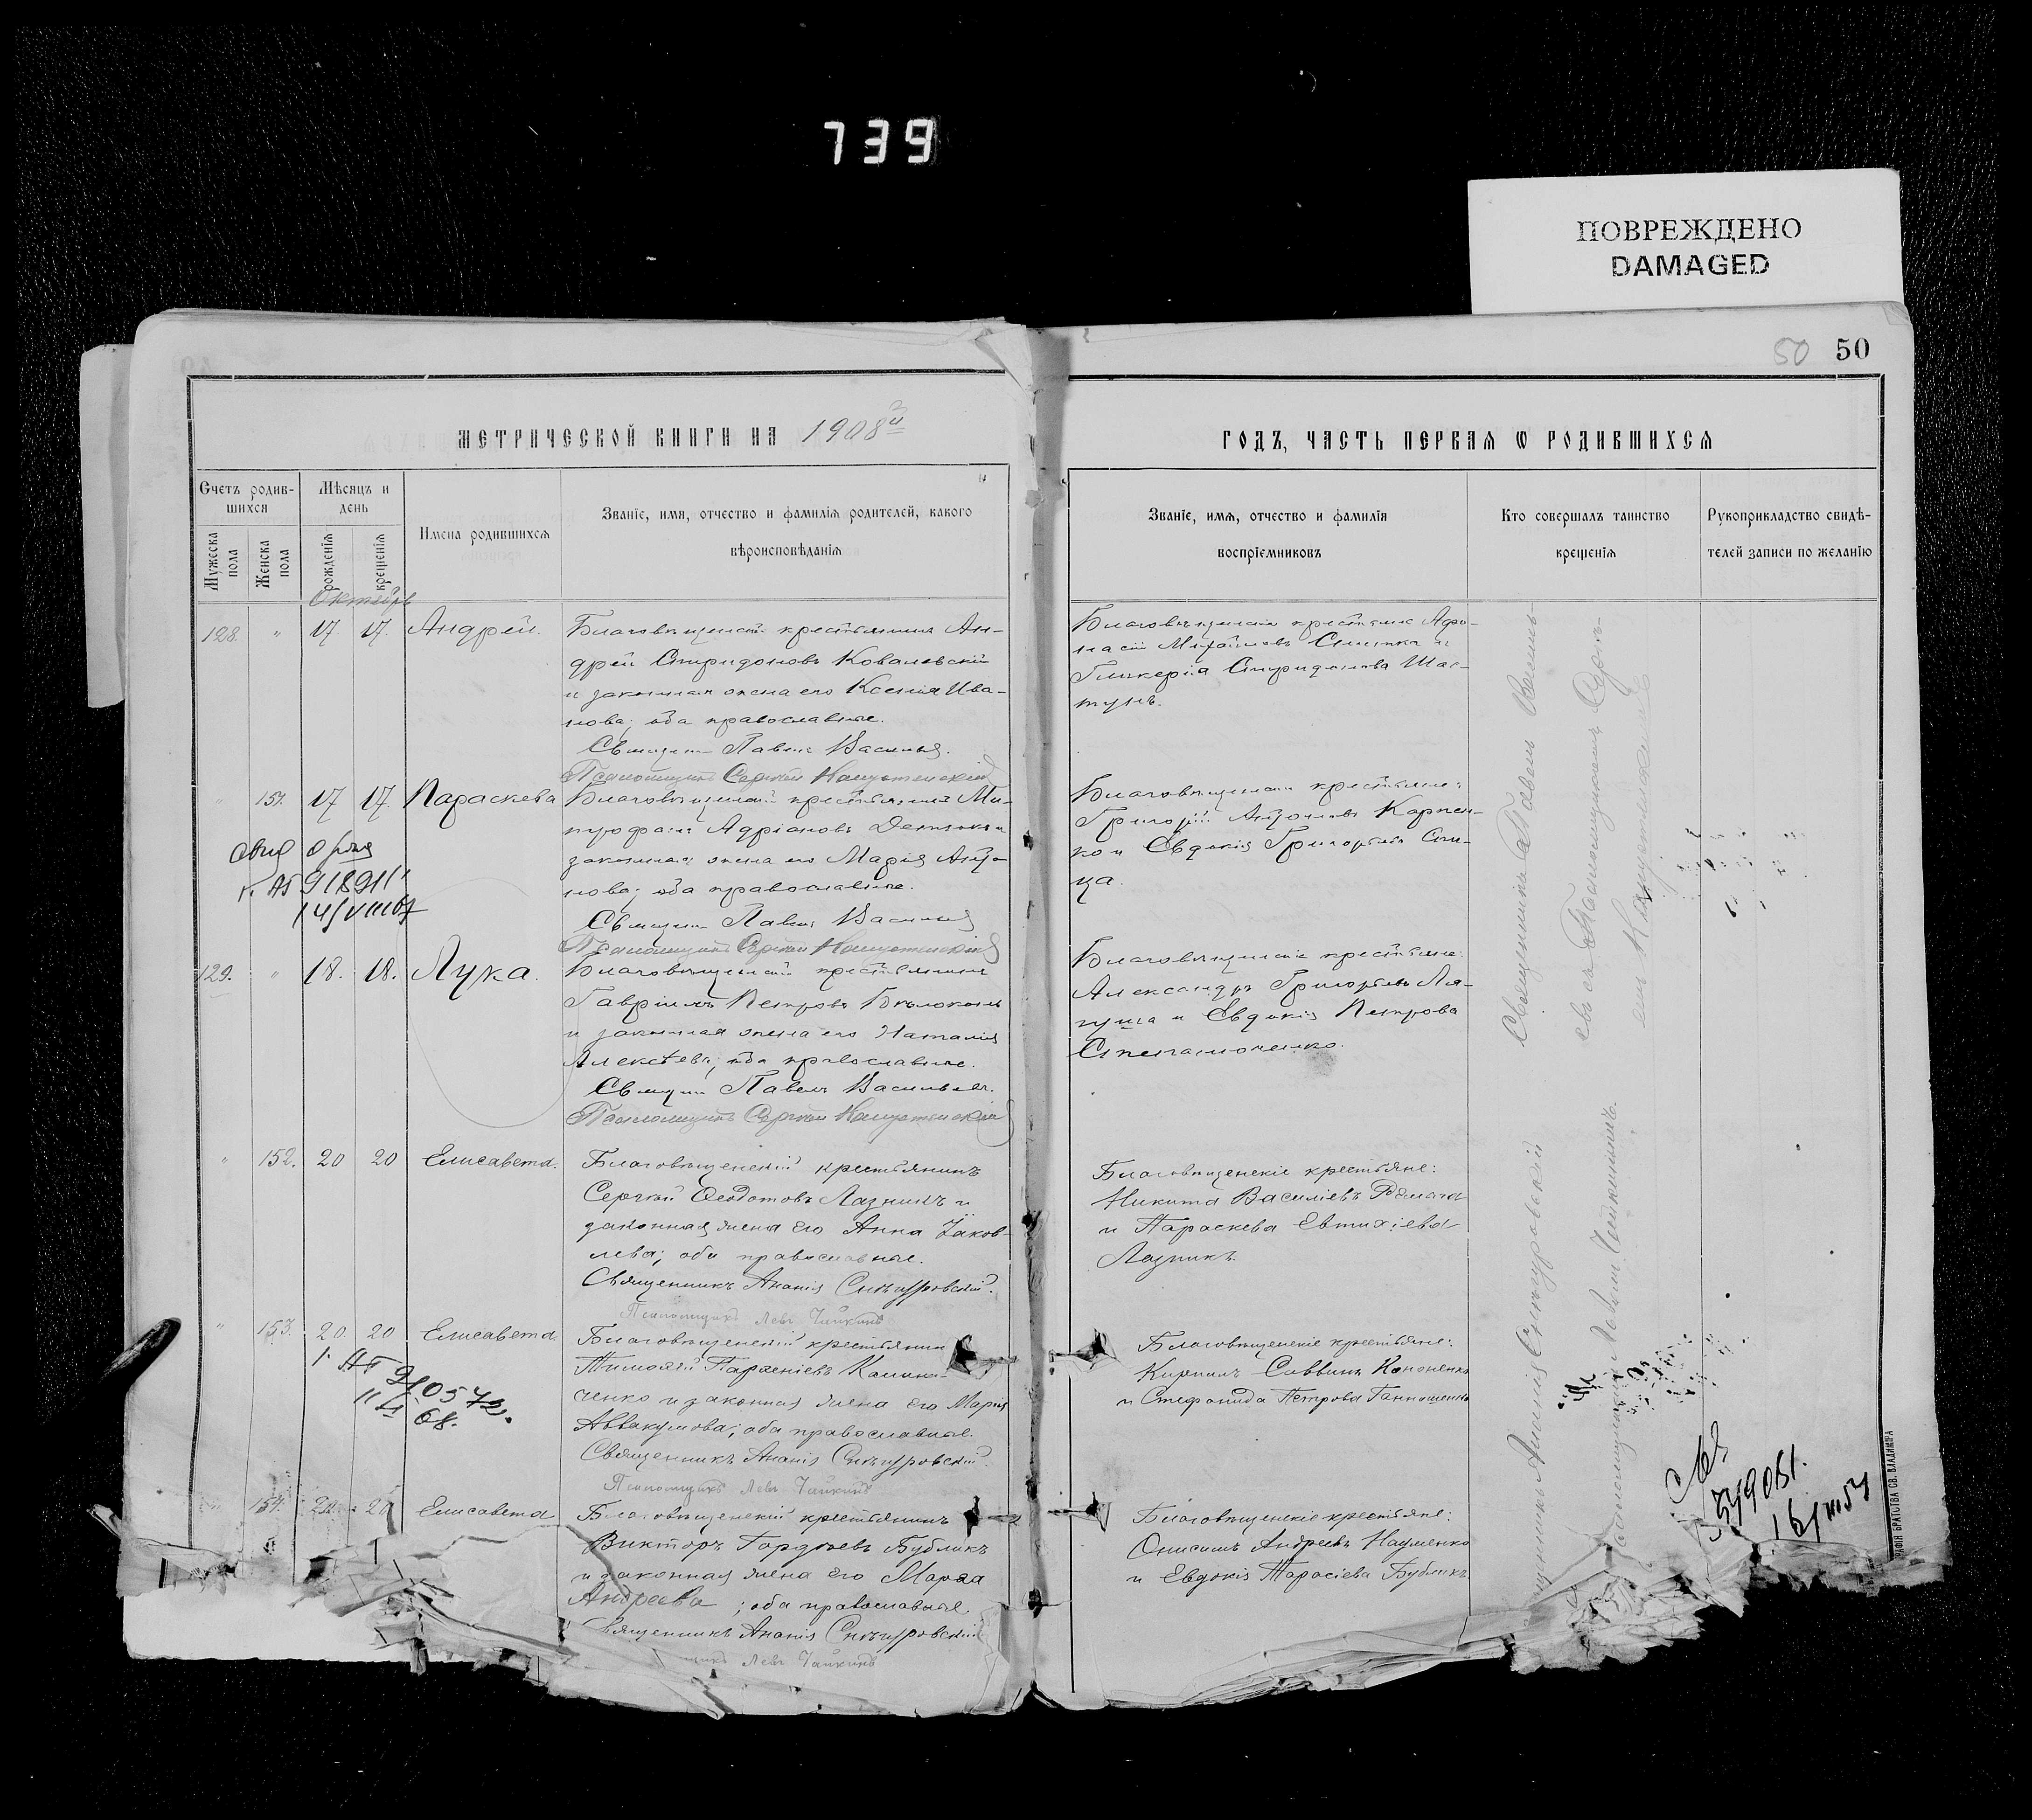 739
ПОВРЕЖДЕНО
DAMAGED
50 50
МЕТРИЧЕСКОЙ КНИГИ НА 1908й
ГОДЪ, ЧАСТЬ ПЕРВАЯ Ѡ РОДИВШИХСЯ
Счетъ родив-
шихся
Мужеска пола
Женска пола
Мѣсяцъ и
день
рожденія
крещенія
Имена родившихся
Званіе, имя, отчество и фамилія родителей, какого
вѣроисповѣданія
Званіе, имя, отчество и фамилія
воспріемниковъ
Кто совершалъ таинство
крещенія
Рукоприкладство свидѣ-
телей записи по желанію
Октябрь
128. " 17. 17. Андрей.
Благовѣщенскій крестьянинъ Ан-
дрей Спиридоновъ Ковалевскій
и законная жена его Ксенія Ива-
нова; оба православные.
Священ. Павелъ Васильев
Псаломщикъ Сергій Капустинскій
Благовѣщенскіе крестьяне Афа-
насій Михайловъ и
Гликерія Спиридонова Шас-
тунъ.
" 151. 17 17. Параскева
Благовѣщенскій крестьянинъ Ми-
трофанъ Адріановъ
законная жена его Марія
нова; оба православные.
Священ. Павелъ Васильев
Псаломщикъ Сергій Капустинскій
Благовѣщенскіе крестьяне:
Григорій Антоновъ Карпен-
ко и Евдокія Григорьева Спи-
ца.
918911
129. " 18. 18. Лука.
Благовѣщенскій крестьянинъ
Гавріилъ Петровъ Бѣлоконь
и законная жена его Наталія
Алексѣева; оба православные.
Священ. Павелъ Васильев.
Псаломщикъ Сергій Капустинскій
Благовѣщенскіе крестьяне:
Александръ Григорьевъ Ля-
гуша и Евдокія Петрова
Степаноченко.
" 152. 20 20 Елисавета.
Благовѣщенскій крестьянинъ
Сергѣй Ѳеодотовъ Лазникъ и
законная жена его Анна Іаков-
лева; оба православные.
Священникъ Ананія Снѣгуровскій.
Псаломщикъ Левъ Чайкинъ
Благовѣщенскіе крестьяне:
Никита Василіевъ
и Параскева Евтихіева
Лазникъ.
" 153. 20. 20 Елисавета.
Благовѣщенскій крестьянин
Тимоѳей Парѳеніевъ Калини-
ченко и законная жена его Марія
Аввакумова; оба православные.
Священникъ Ананія Снѣгуровскій.
Псаломщикъ Левъ Чайкинъ
Благовѣщенскіе крестьяне:
Кириллъ Саввинъ Кононенко
и Стефанида Петрова
154. 20 20 Елисавета
Благовѣщенскій крестьянинъ
Викторъ Гордѣевъ Бубликъ
и законная жена его Марѳа
Андреева; оба православные
Священникъ Ананія Снѣгуровскій
Левъ Чайкинъ
Благовѣщенскіе крестьяне:
Онисимъ Андреевъ Науменко
и Евдокія Тарасіева Бубликъ
Священникъ Павелъ
евъ съ Псаломщикомъ
Ананія Снѣгуровскій